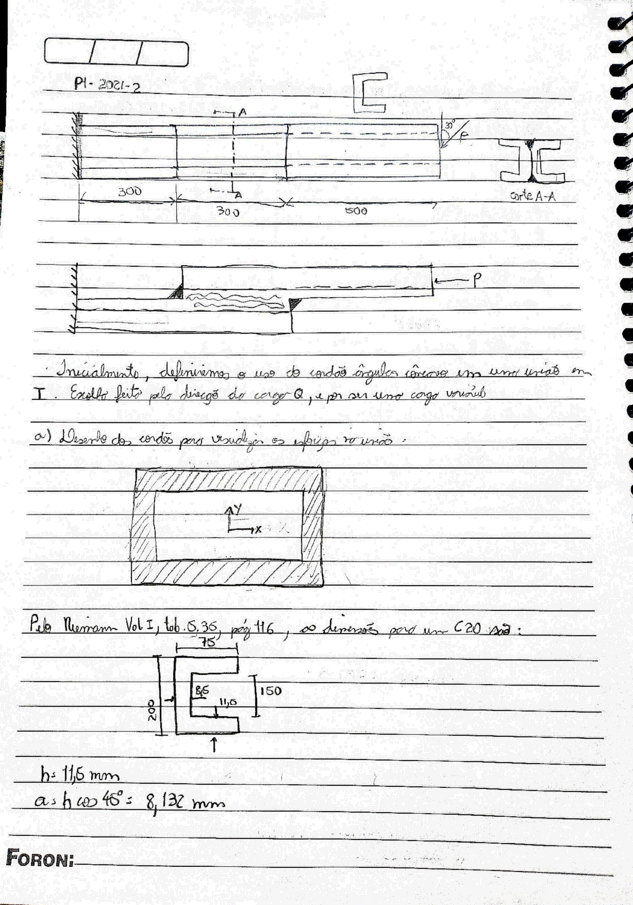 P1-2021-2
A
30°
P
A
corte A-A
300
300
500
P
Inicialmente, definiremos o uso do cordão ângular côncavo em uma união em
T. Escolha feita pela direção da carga Q, e por ser uma carga variável
a) Desenho dos cordão para visualizar os esforços na união.
Y
X
Pelo Niemann Vol I, tab. 5.35, pág 116, as dimensões para um C20 são:
75
200
8,5
11,5
150
h= 11,5 mm
a= h cos 45° = 8,132 mm
FORONI